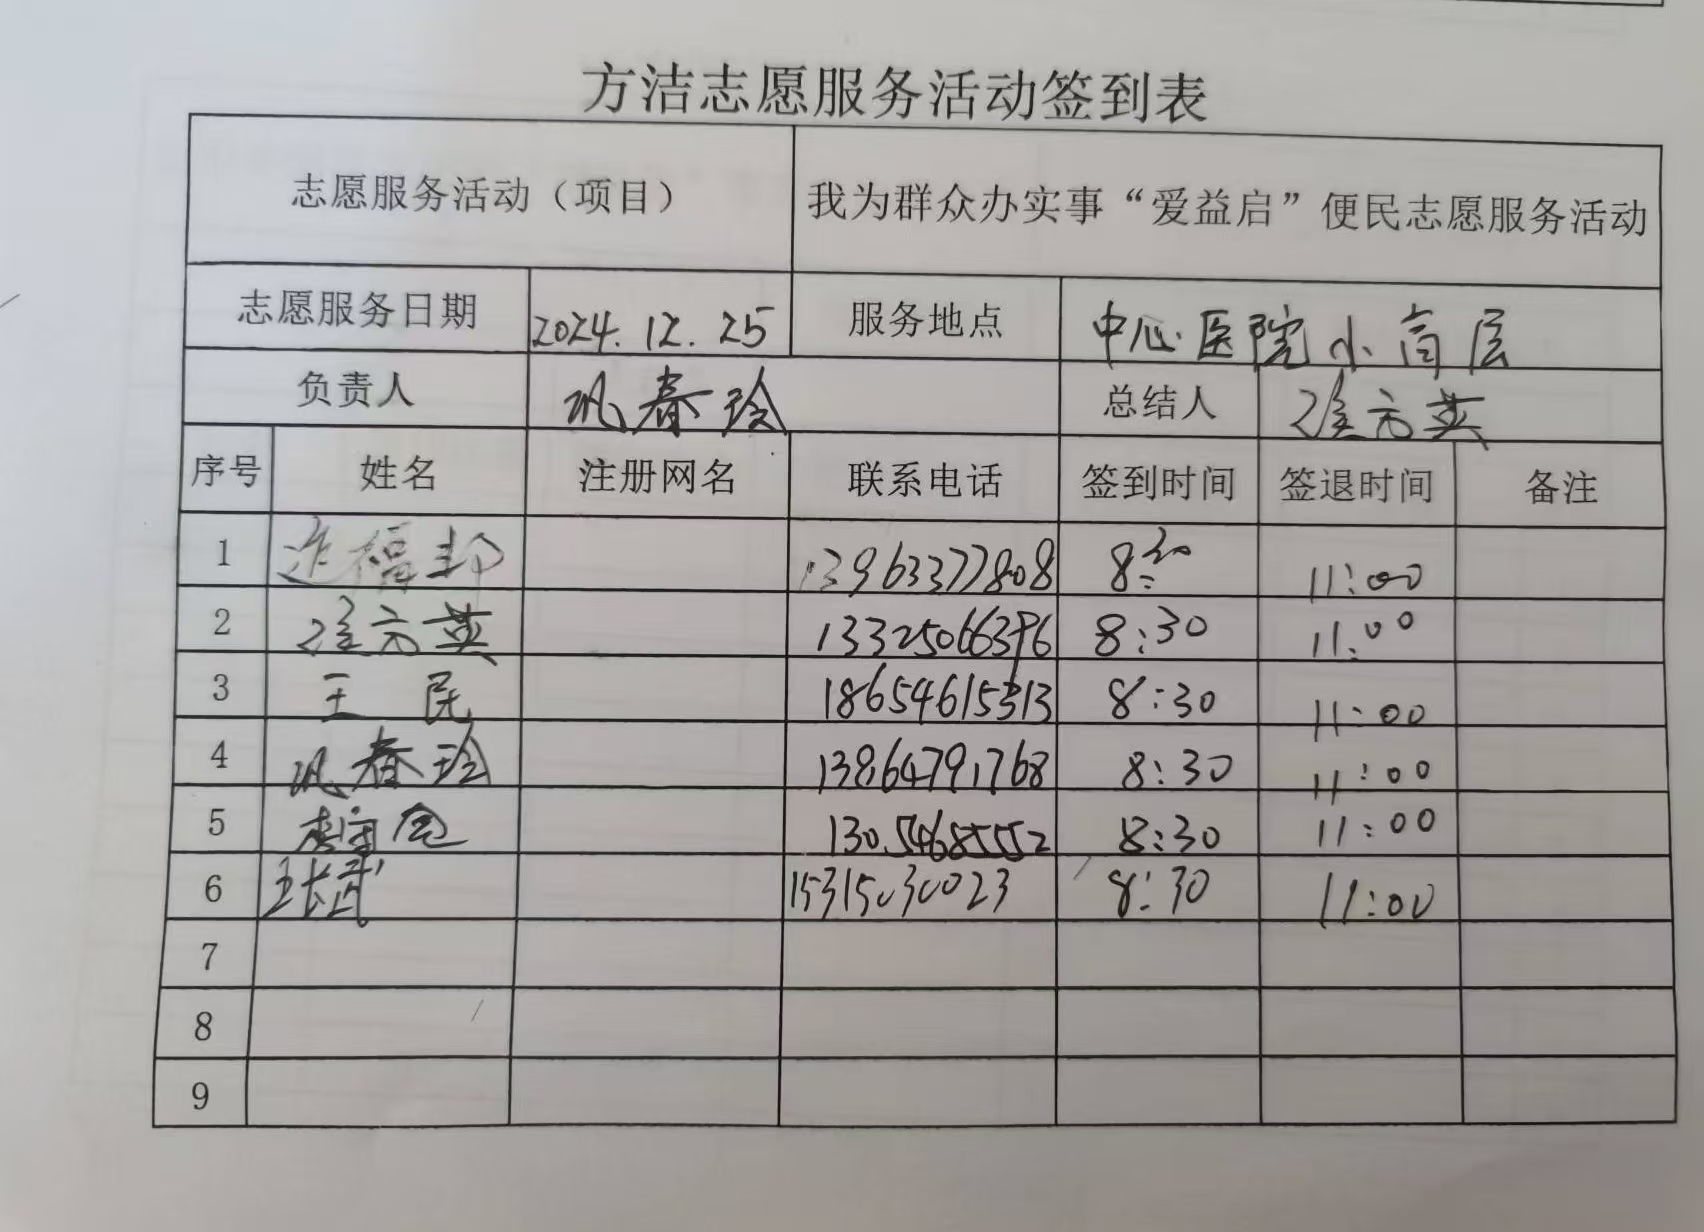 方洁志愿服务活动签到表
志愿服务活动（项目） 我为群众办实事“爱益启”便民志愿服务活动
志愿服务日期 2024.12.25 服务地点 中心医院小高层
负责人 巩春玲 总结人 元英
序号 姓名 注册网名 联系电话 签到时间 签退时间 备注
1 福 13963377808 8:30 11:00
2 元英 13325066396 8:30 11:00
3 王民 18654615313 8:30 11:00
4 巩春玲 13864791768 8:30 11:00
5 13054685552 8:30 11:00
6 王长武 15315030023 8:30 11:00
7
8
9